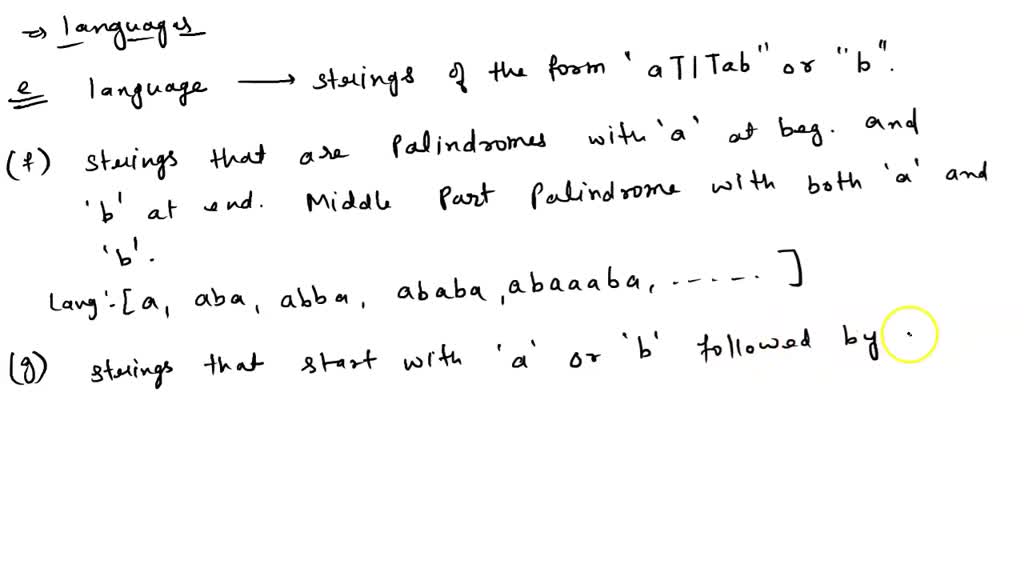 ⇒ languages
e language ⟶ strings of the form "aT|Tab" or "b".
(f) strings that are Palindromes with 'a' at beg. and
'b' at end. Middle Part Palindrome with both 'a' and
'b'.
Lang:- [a, aba, abba, ababa, abaaaba, ------ ]
(g) strings that start with 'a' or 'b' followed by